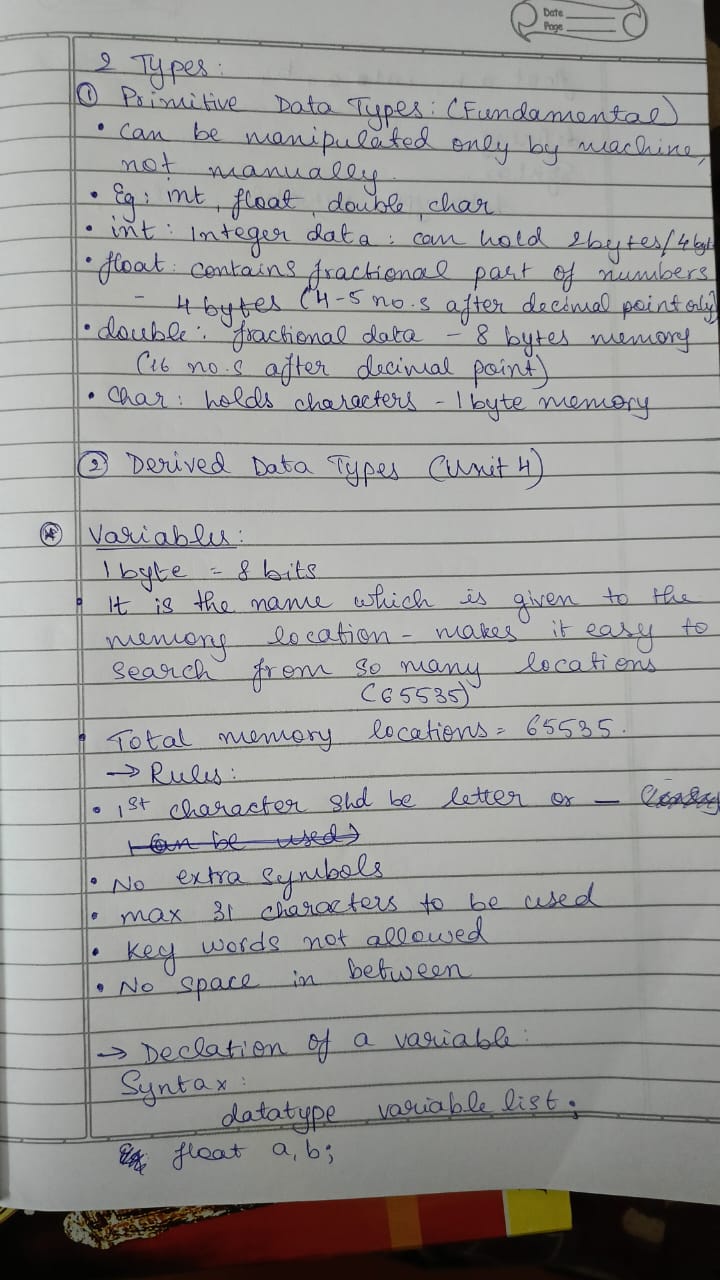 Date
Page
2 Types:
① Primitive Data Types: (Fundamental)
• Can be manipulated only by machine,
not manually.
• Eg: int, float, double, char
• int: Integer data: can hold 2bytes/4byt
• float: contains fractional part of numbers
- 4 bytes (4-5 no.s after decimal point only)
• double: fractional data - 8 bytes memory
(16 no.s after decimal point)
• Char: holds characters - 1 byte memory
② Derived Data Types (Unit 4)
Variables:
1 byte = 8 bits
• It is the name which is given to the
memory location - makes it easy to
search from so many locations
(65535)
• Total memory locations = 65535.
→ Rules:
• 1st character shd be letter or _
can be used)
• No extra symbols
• max 31 characters to be used
• Key words not allowed
• No space in between
→ Declation of a variable:
Syntax:
datatype variable list;
Eg: float a,b;